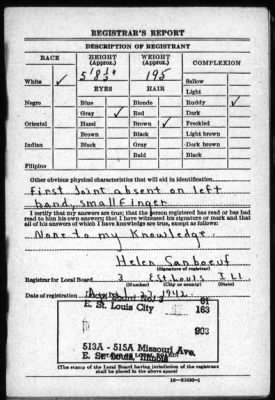 REGISTRAR'S REPORT
DESCRIPTION OF REGISTRANT
RACE HEIGHT (Approx.) WEIGHT (Approx.) COMPLEXION
White ✓ 5' 8½" 195 Sallow
EYES HAIR Light
Negro Blue Blonde Ruddy ✓
Gray ✓ Red Dark
Oriental Hazel Brown ✓ Freckled
Brown Black Light brown
Indian Black Gray Dark brown
Bald Black
Filipino
Other obvious physical characteristics that will aid in identification
First joint absent on left
hand, small finger
I certify that my answers are true; that the person registered has read or has had
read to him his own answers; that I have witnessed his signature or mark and that
all of his answers of which I have knowledge are true, except as follows:
None to my knowledge.
Helen
(Signature of registrar)
Registrar for Local Board 3 E St. Louis Ill
(Number) (City or county) (State)
Date of registration April 27, 1942
E. St. Louis City 163
903
513A - 515A Missouri Ave.
E. St. Louis, Illinois
(The stamp of the Local Board having jurisdiction of the registrant
shall be placed in the above space)